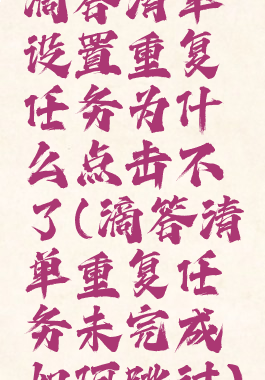 滴答清单
设置重复
任务为什
么点击不
了(滴答清
单重复任
务未完成
如何跳过)